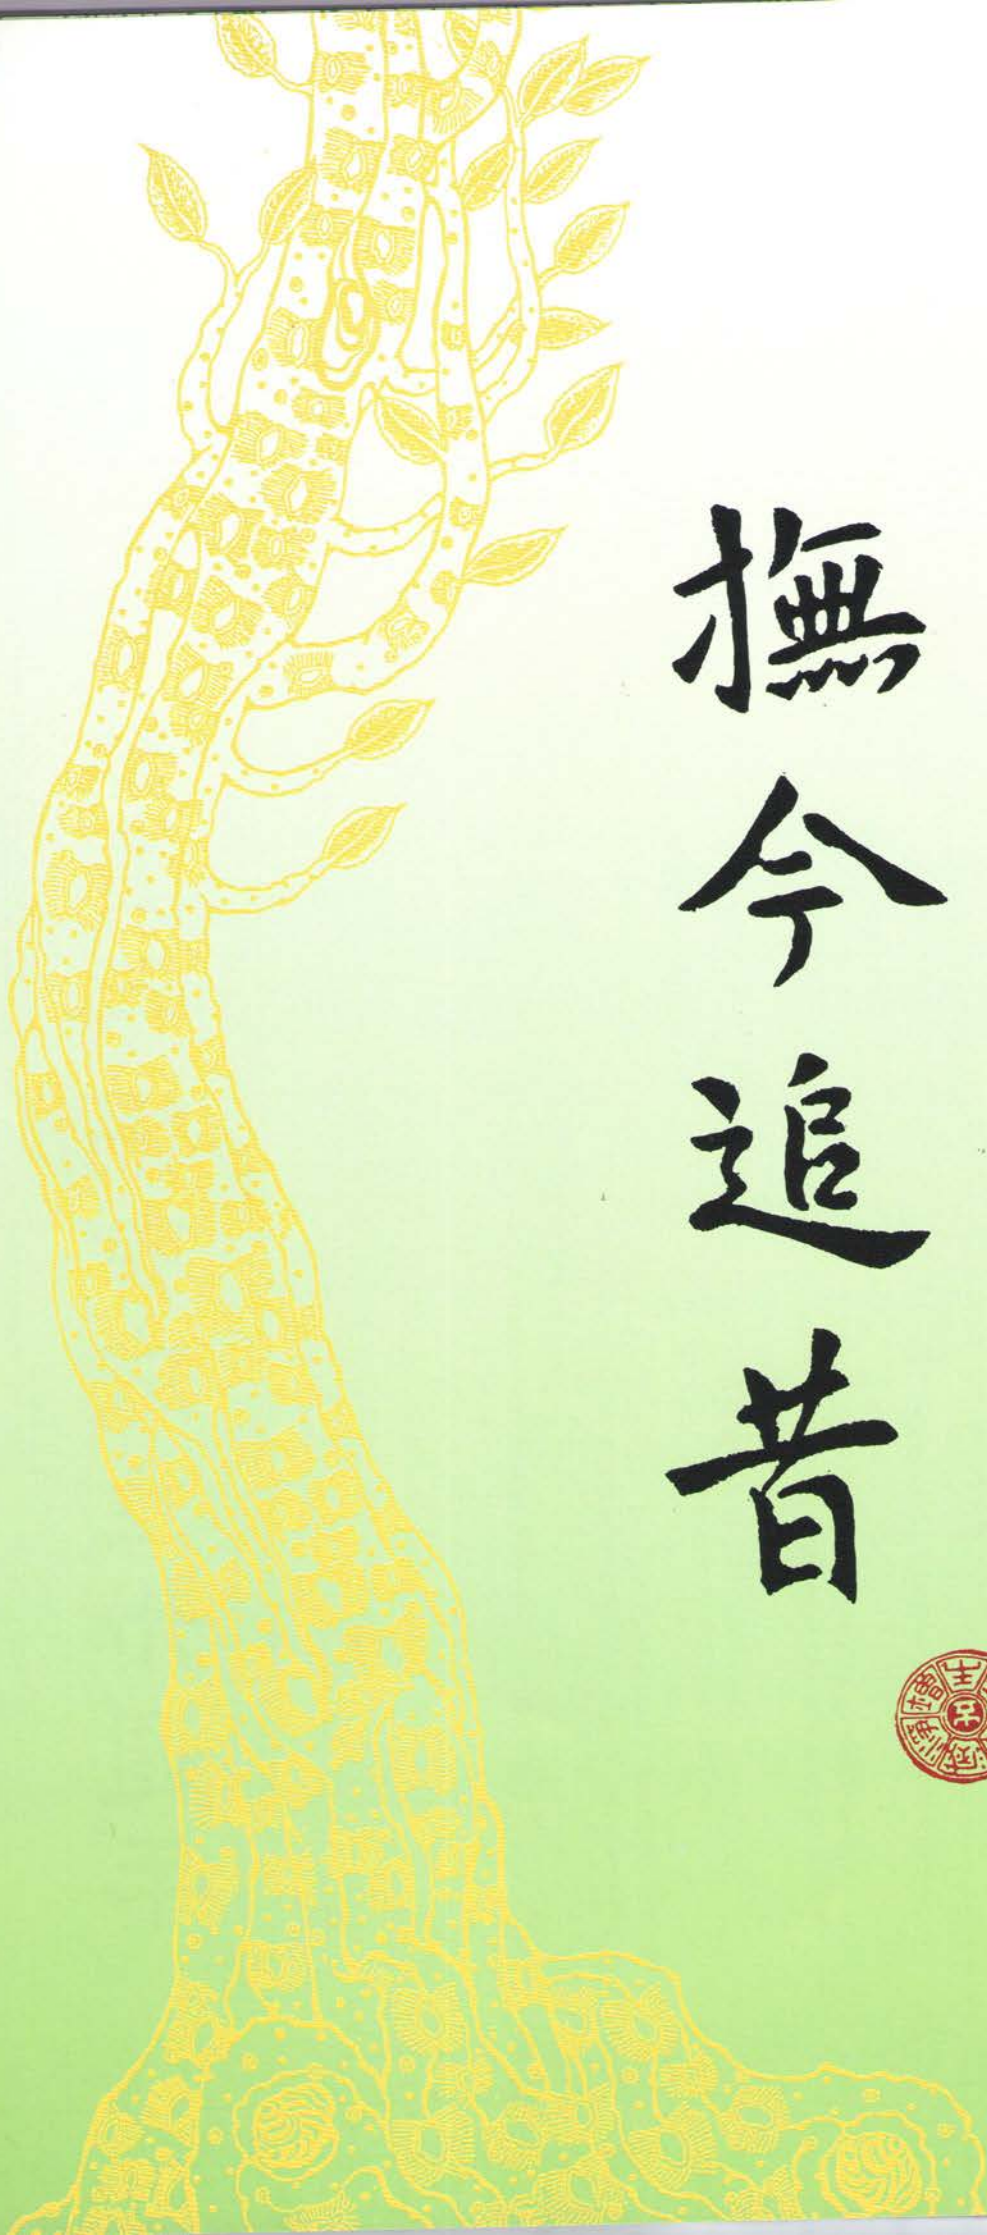 撫今追昔
生